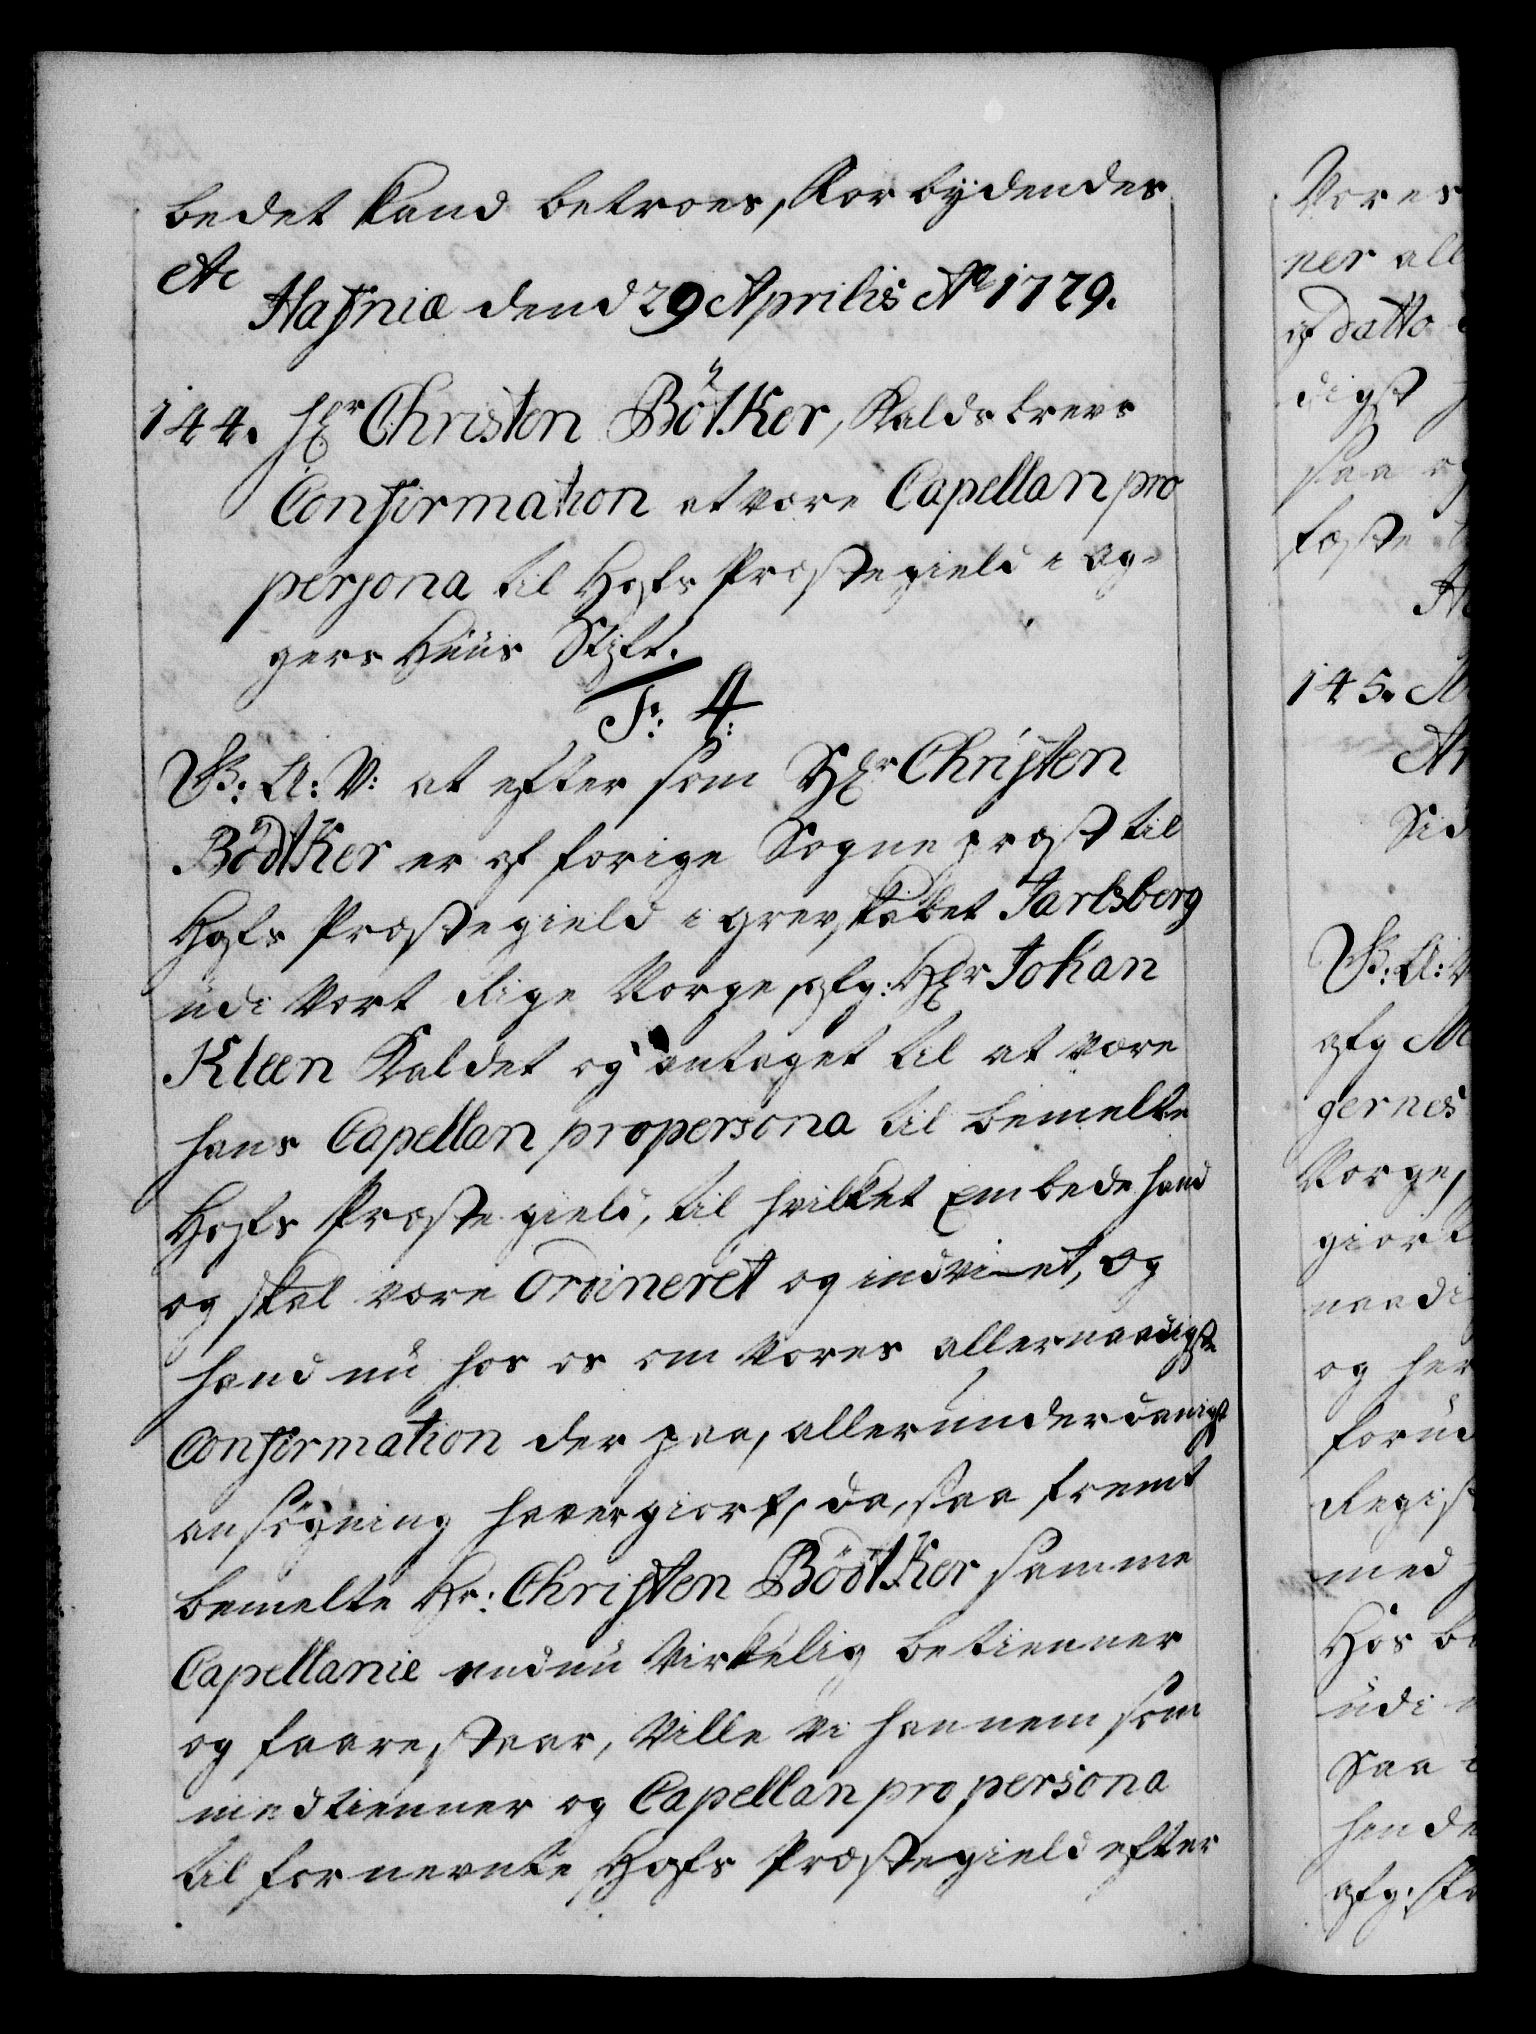 bedet kand betroes, Forbydendes
etc
Hafniæ dend 29 Aprilis Ao 1729.
144. Hr Christen Bötker, Kaldsbrevs
Confirmation at være Capellan pro
persona til Hofs Præstegield i Ag-
gers Huus Stift.
F: 4:
G: A: V: at eftersom Hr Christen
Bödtker er af forige Sognepræst til
Hofs Præstegield i grevskabet Jarlsberg
udi Vort Rige Norge, afg: Hr Johan
Kleen Kaldet og antaget til at være
hans Capellan pro persona til bemelte
Hofs Præstegield, til hvilket Embede hand
og skal være Ordineret og indviet, og
hand nu hos os om Vores allernaadigste
Confirmation der paa, allerunderdanigst
ansögning haver giort, da, saa fremt
bemelte Hr: Christen Bödtker samme
Capellanie endnu Virkelig betienner
og faarestaar, Ville Vi hannem som
medtienner og Capellan pro persona
til fornevnte Hofs Præstegield efter
Vores
ner all
af Datto
digst
saa og
fæste
145.
G: A: V
afg M
gernes
Norge,
giort
naadi
og her
forud
Regist
med
Hos be
udi
Saa
hende
afg: